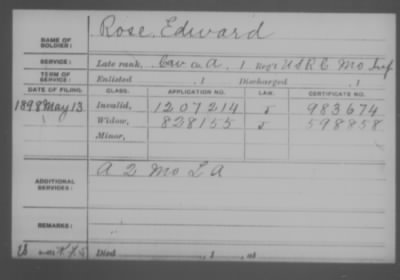 NAME OF SOLDIER: Rose, Edward
SERVICE: Late rank, Co. A, 1 Reg't U S R C Mo Inf
TERM OF SERVICE: Enlisted , 1 Discharged , 1
DATE OF FILING. CLASS. APPLICATION NO. LAW. CERTIFICATE NO.
1898 May 13 Invalid, 1207214 983674
Widow, 828155 598858
Minor,
ADDITIONAL SERVICES: A 2 Mo L A
REMARKS:
Died , 1 , at